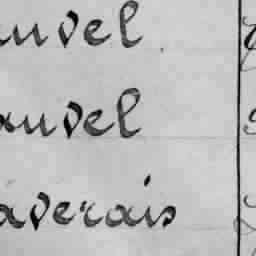 auvel
auvel
averais